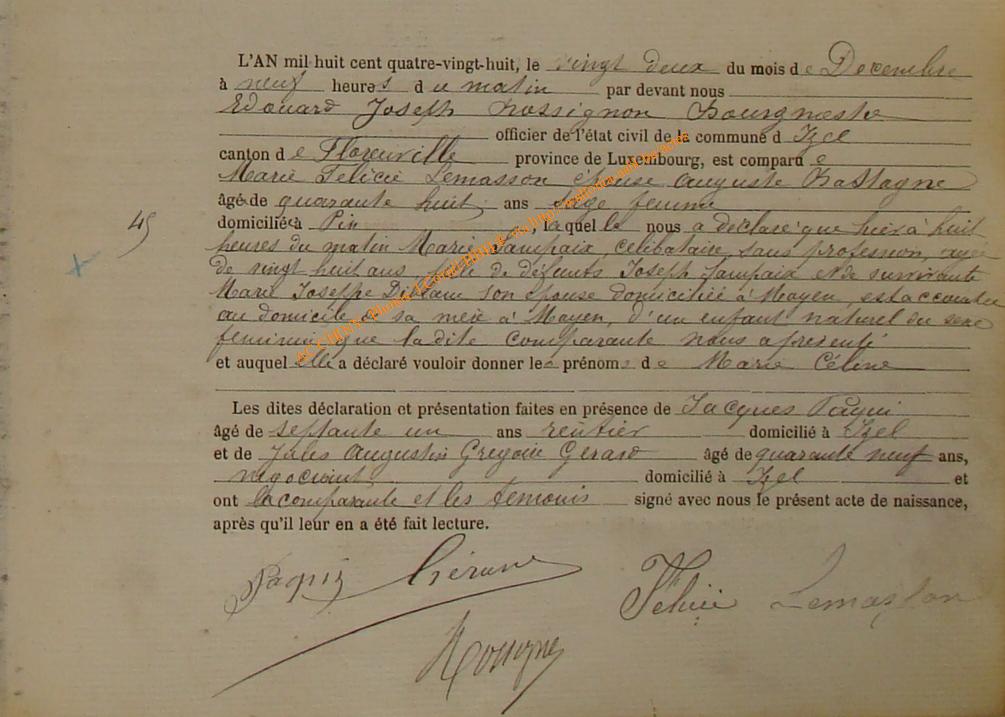 L'AN mil huit cent quatre-vingt-huit, le vingt deux du mois de Decembre
à neuf heures du matin par devant nous
Edouard Joseph Rossignon Bourgmestre
officier de l'état civil de la commune d Izel
canton de Florenville province de Luxembourg, est comparu e
Marie Felicie Lemasson épouse Auguste Bastagne
âgé e de quarante huit ans sage femme
domicilié à Pin laquelle nous a déclaré que hier à huit
heures du matin Marie Jampaix, célibataire, sans profession, agée
de vingt huit ans, fille de défunts Joseph Jampaix et de survivante
Marie Josephe son épouse domiciliée à Moyen, est accouchée
au domicile de sa mère à Moyen, d'un enfant naturel du sexe
feminin, que la dite comparante nous a presenté
et auquel elle a déclaré vouloir donner les prénoms de Marie Céline
Les dites déclaration et présentation faites en présence de Jacques
âgé de septante un ans rentier domicilié à Izel
et de Jules Augustin Gregoire Gerard âgé de quarante neuf ans,
negociant domicilié à Izel et
ont la comparante et les temoins signé avec nous le présent acte de naissance,
après qu'il leur en a été fait lecture.
45
Gérard
Félicie Lemasson